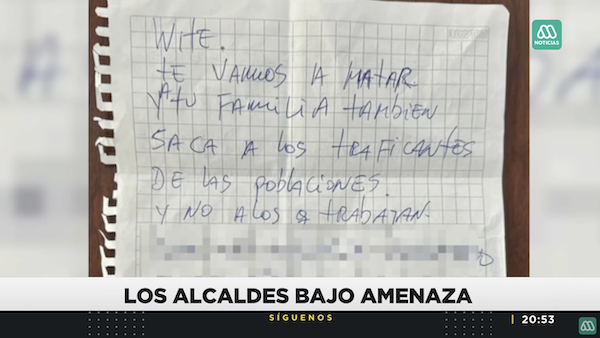 NOTICIAS
WITE.
TE VAMOS A MATAR
Y A TU FAMILIA TAMBIEN
SACA A LOS TRAFICANTES
DE LAS POBLACIONES.
Y NO A LOS Q TRABAJAN.
LOS ALCALDES BAJO AMENAZA
SÍGUENOS
20:53